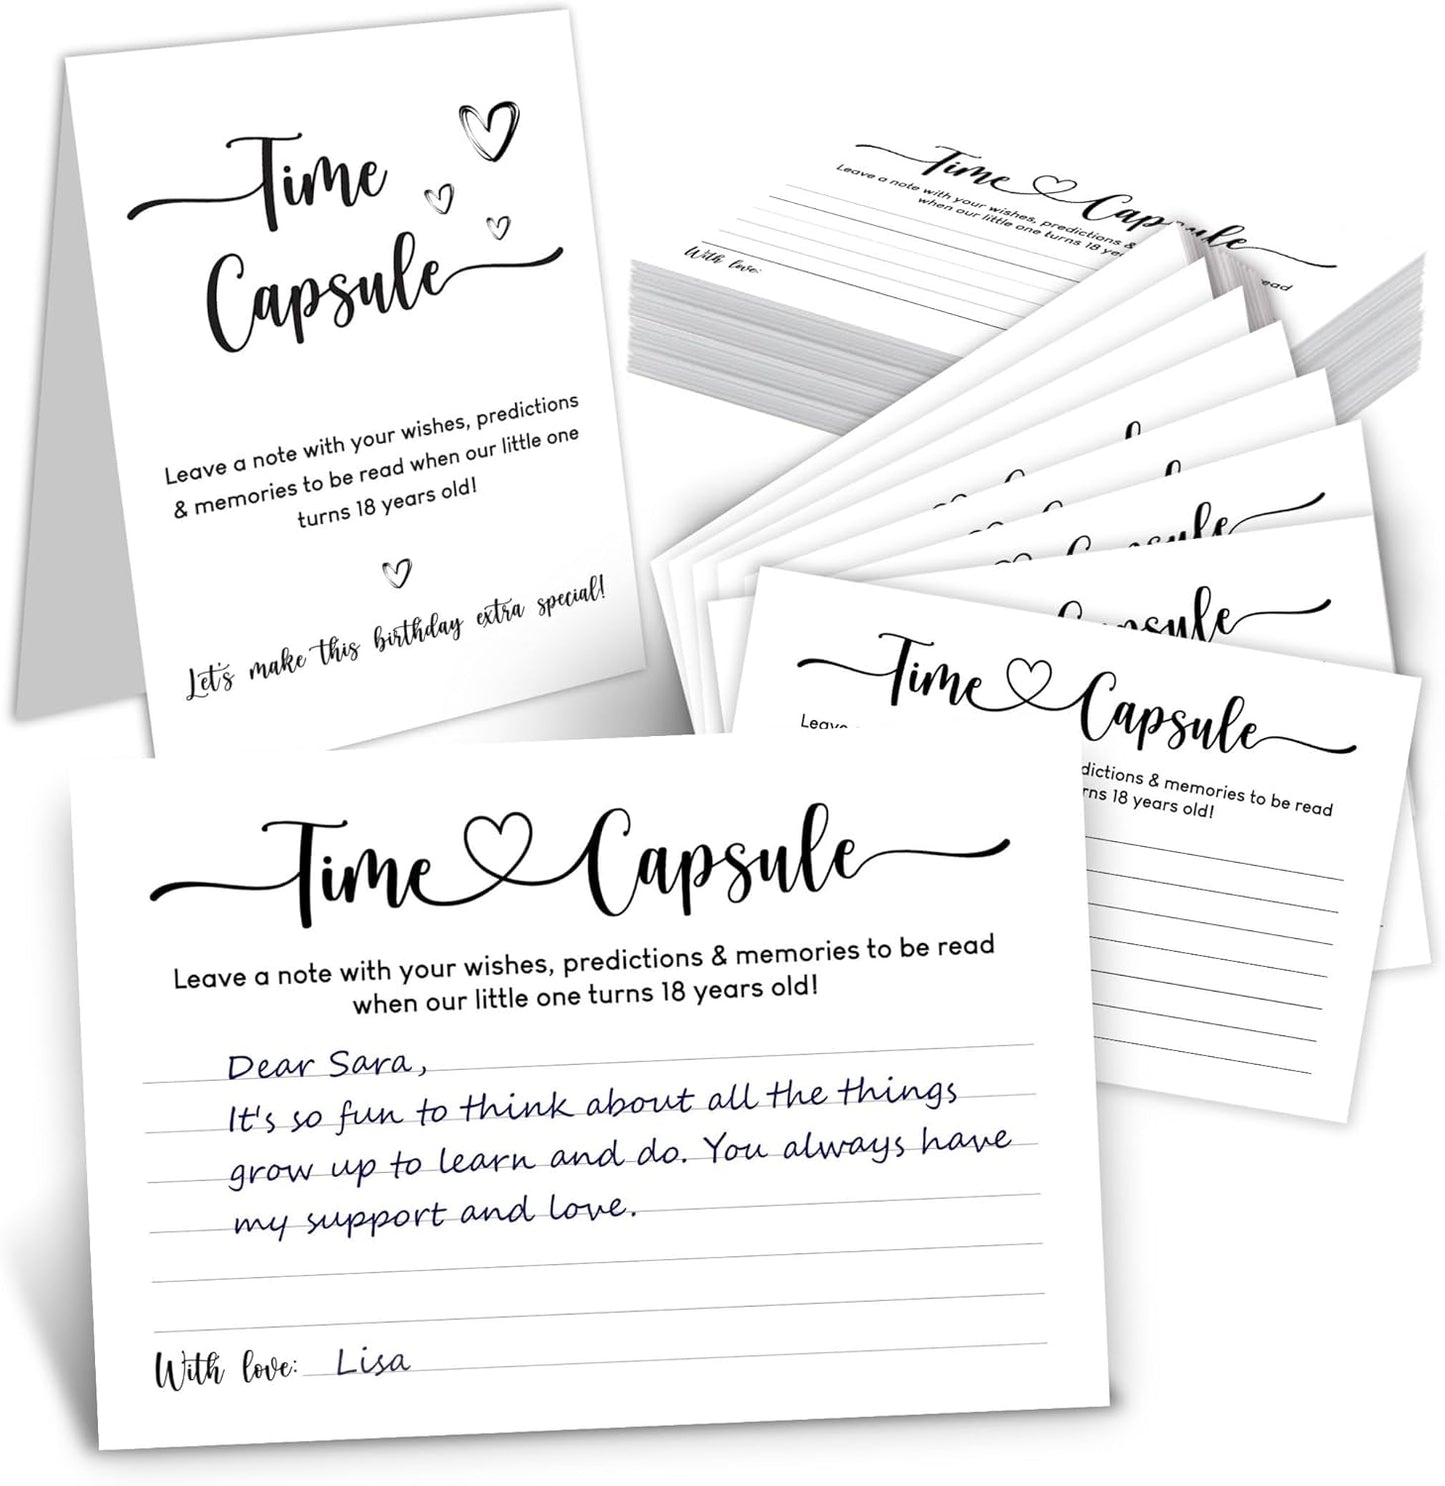 Time
Capsule
Leave a note with your wishes, predictions
& memories to be read when our little one
turns 18 years old!
Let's make this birthday extra special!
Time Capsule
Leave a note with your wishes, predictions &
when our little one turns 18 yea
ead
With love:
Time Capsule
Leav
dictions & memories to be read
rns 18 years old!
Time Capsule
Leave a note with your wishes, predictions & memories to be read
when our little one turns 18 years old!
Dear Sara,
It's so fun to think about all the things
grow up to learn and do. You always have
my support and love.
With love: Lisa